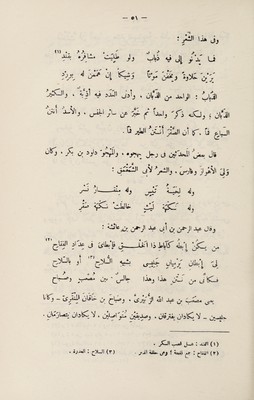 — ٥١ —
وفى هذا الشعر :
فما يَدْنُو إلى فيه ذُبابٌ ولو طُلِيَتْ مَشافِرُه بقَنْدِ (١)
يَرَيْنَ حلاوةً ويَخَفْنَ مَوْتًا وَشِيكًا إن هَمَمْنَ له بِوِرْدِ
الذُّبابُ : الواحد من الذِّبَّان . وأدنى العدد فيه أَذِبَّةٌ . والكثيرُ
الذِّبَّان ؛ ولكنه ذكرَ واحدًا ثم خَبَّرَ عن سائر الجنس . والأسدُ أنتنُ
السِّباع فَا . كما أن الصَّقْرَ أَنْتَنُ الطير فَا .
قال بعضُ المُحدَثين فى رجلٍ يهجوه . والمَهْجُوّ داود بن بكر . وكان
وَلِىَ الأهوازَ وفارس . والشعرُ لأبى الشَّمَقْمَق :
وله لِحيَةُ تَيْسٍ وله مِنقارُ نَسْرِ
وله نَكْهَةُ لَيْثٍ خالطتْ نَكْهَةَ صَقْرِ
وقال عبد الرحمن بن أبى عبد الرحمن بن عائشة :
من يكنْ إِبْطُه كآباطِ ذا الخَلْـ ـقِ فإبْطاىَ فى عِدادِ الفِقاحِ (٢)
لِىَ إبْطانِ يَرْمِيانِ جَلِيسى بشَبيه السُّلاح (٣) أو بالسُّلاحِ
فكأنى من نَتْنِ هذا وهذا جالسٌ بين مُصْعَبٍ وصَباحِ
يعنى مصعَبَ بن عبد الله الزُّبَيْرىّ . وصباحَ بن خاقانَ المِنْقَرىّ . وكانا
جليسين . لا يكادان يفترقان . وصديقين مُتواصِلين . لا يكادان يتصارمان .
(١) القند : عسل قصب السكر .
(٢) الفقاح : جمع فقحة ! وهى حلقة الدبر . (٣) السلاح : العذرة .